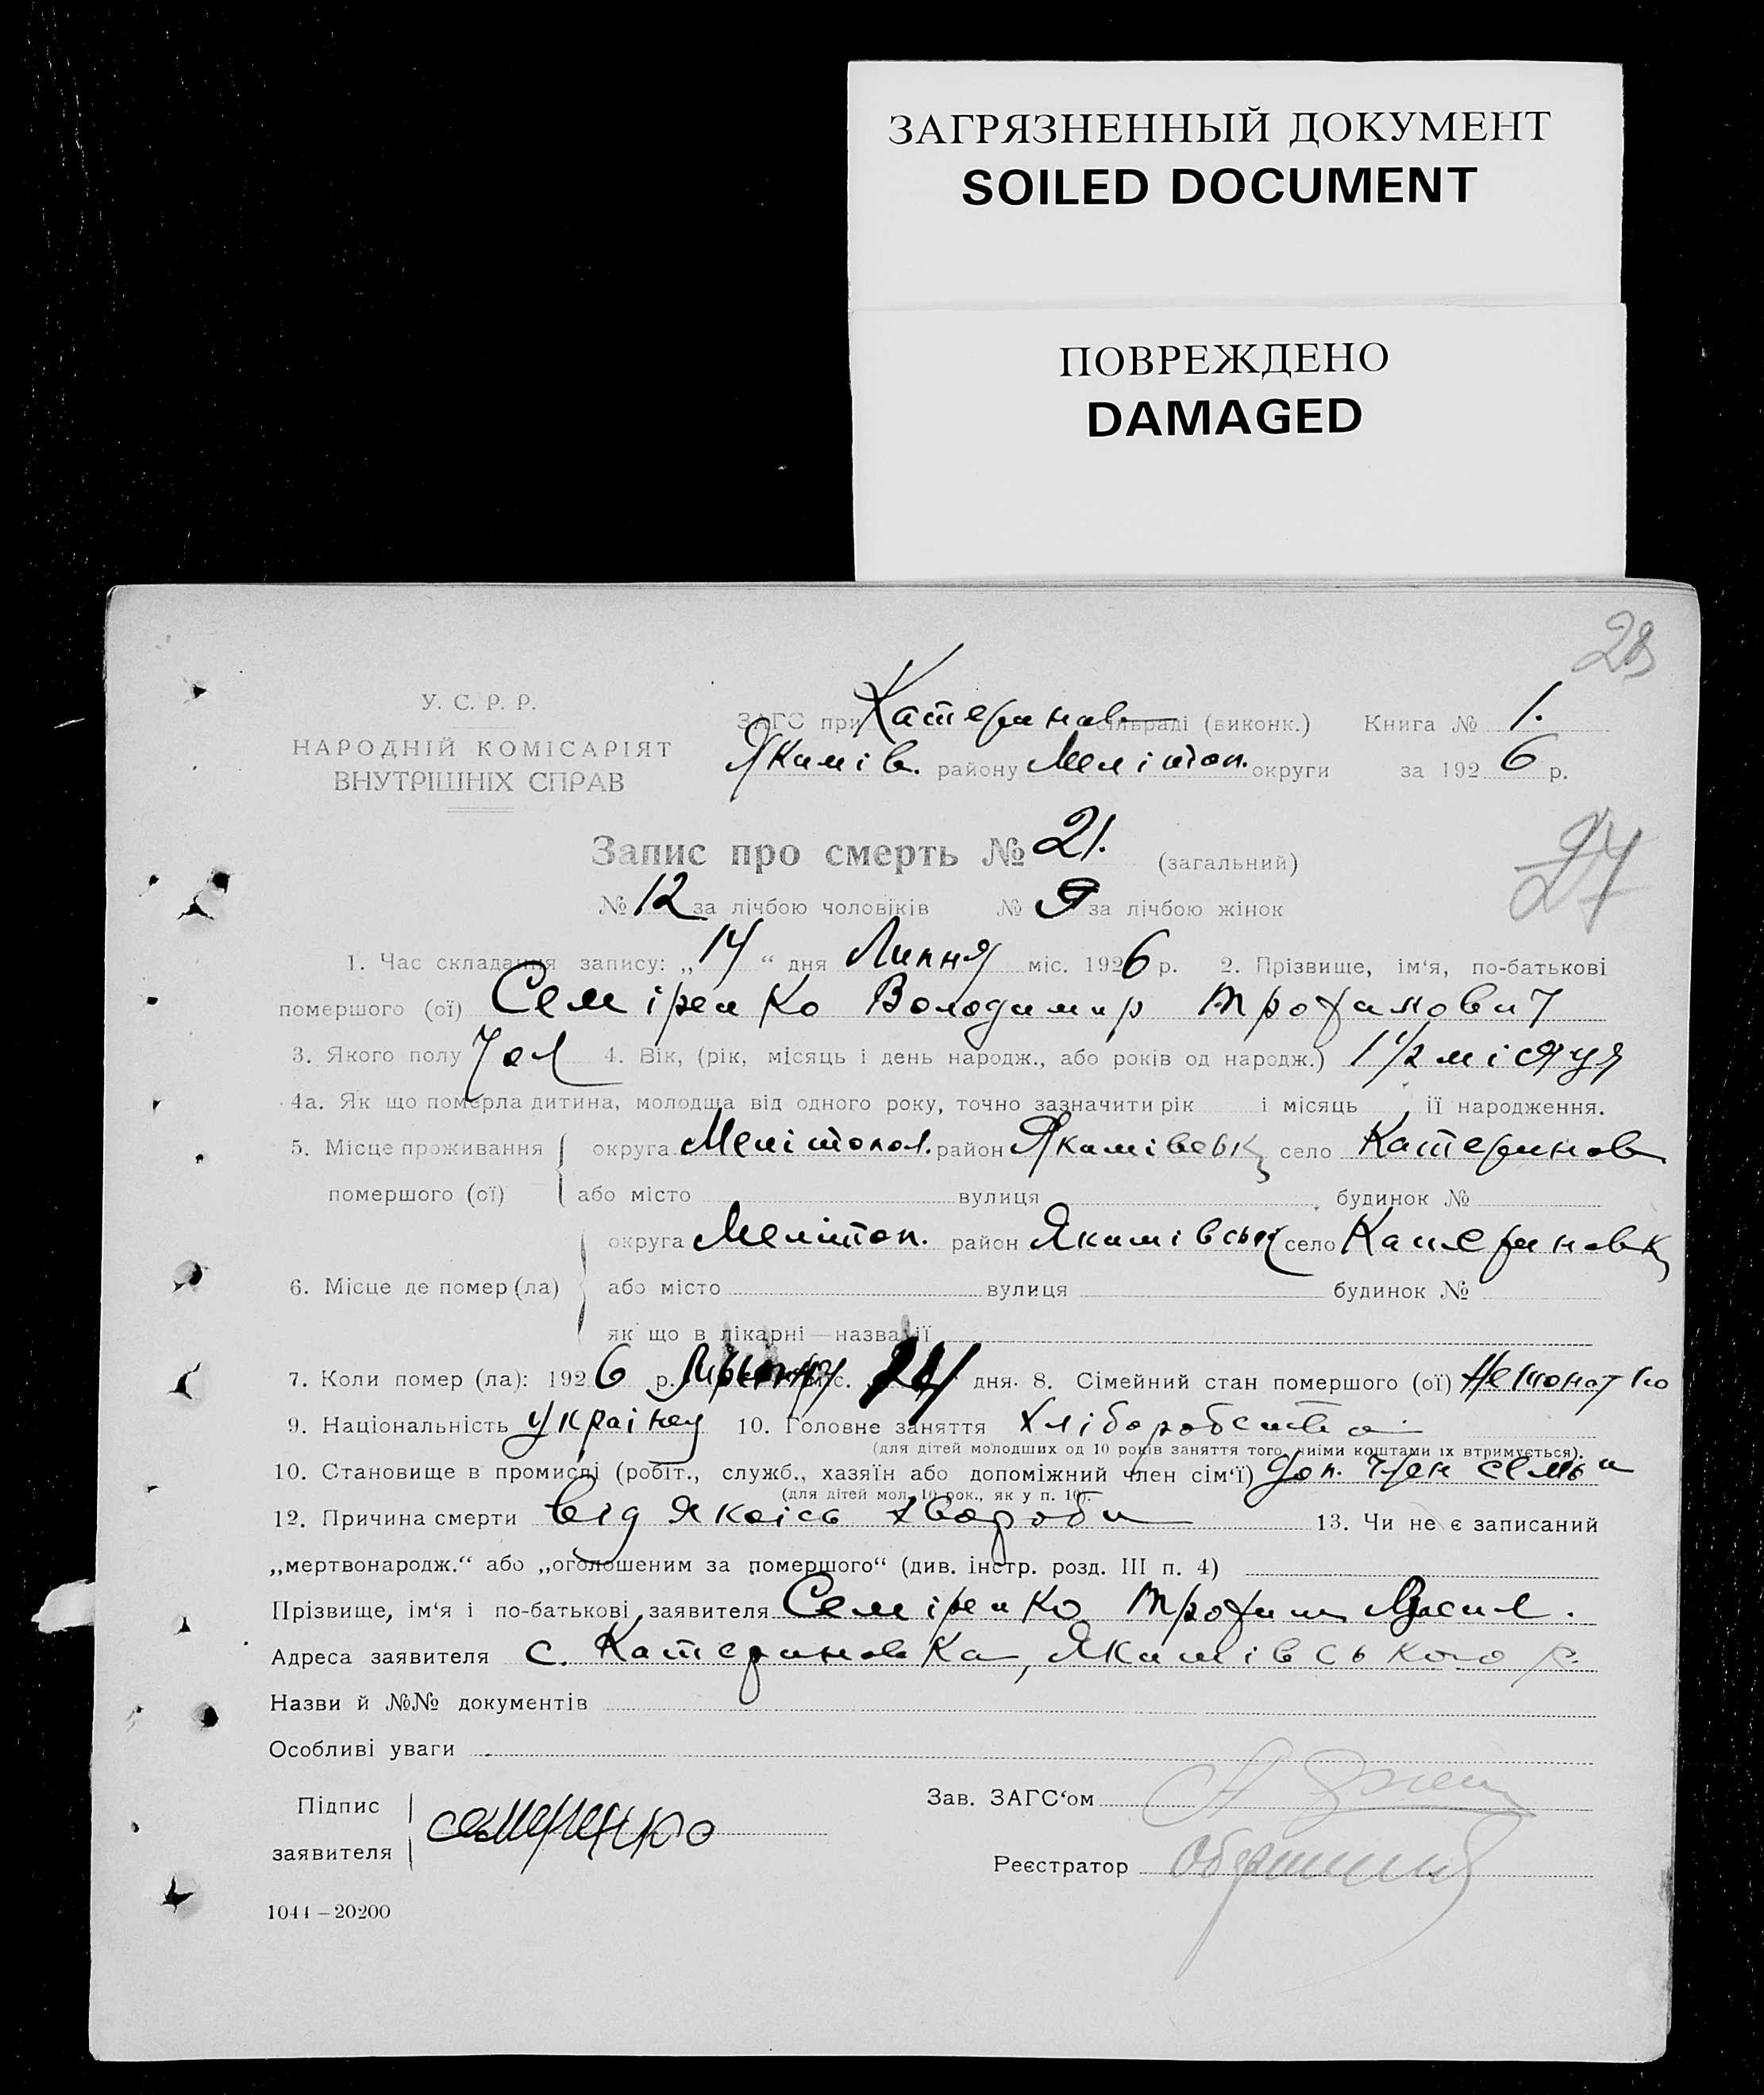 ЗАГРЯЗНЕННЫЙ ДОКУМЕНТ
SOILED DOCUMENT
ПОВРЕЖДЕНО
DAMAGED
28
У. С. Р. Р.
НАРОДНІЙ КОМІСАРІЯТ
ВНУТРІШНІХ СПРАВ
ЗАГС при Катеринов сільраді (виконк.) Книга № 1.
Якимів. району Мелітоп. округи за 1926 р.
Запис про смерть № 21. (загальний)
27
№ 12 за лічбою чоловіків № 9 за лічбою жінок
1. Час складання запису: „14“ дня Липня міс. 1926 р. 2. Прізвище, ім‘я, по-батькові
померш​ого (ої) Семіренко Володимир Трофимович
3. Якого полу чол 4. Вік, (рік, місяць і день народж., або років од народж.) 1 1/2 місяця
4а. Як що померла дитина, молодща від одного року, точно зазначити рік і місяць її народження.
5. Місце проживання округа Мелітопол. район Якимівськ село Катеринов
померш​ого (ої) або місто вулиця будинок №
округа Мелітоп. район Якимівськ село Катериновк
6. Місце де помер (ла) або місто вулиця будинок №
як що в лікарні—назва її
7. Коли помер (ла): 1926 р. міс. дня. 8. Сімейний стан померш​ого (ої) Нежонатко
9. Національність Україней 10. Головне заняття Хліборобство
(для дітей молодших од 10 років заняття того, чиїми коштами їх втримується).
10. Становище в промислі (робіт., служб., хазяїн або допоміжний член сім‘ї) Доп. член семьи
(для дітей мол. 10 рок., як у п. 10).
12. Причина смерти Від якоісь хвороби 13. Чи не є записаний
„мертвонародж.“ або „оголошеним за померш​ого“ (див. інстр. розд. III п. 4)
Прізвище, ім‘я і по-батькові заявителя Семіренко Трофим Васил.
Адреса заявителя с. Катериновка, Якимівського р.
Назви й №№ документів
Особливі уваги
Підпис Зав. ЗАГС‘ом
заявителя Семиренко
Реєстратор
1044 – 20200